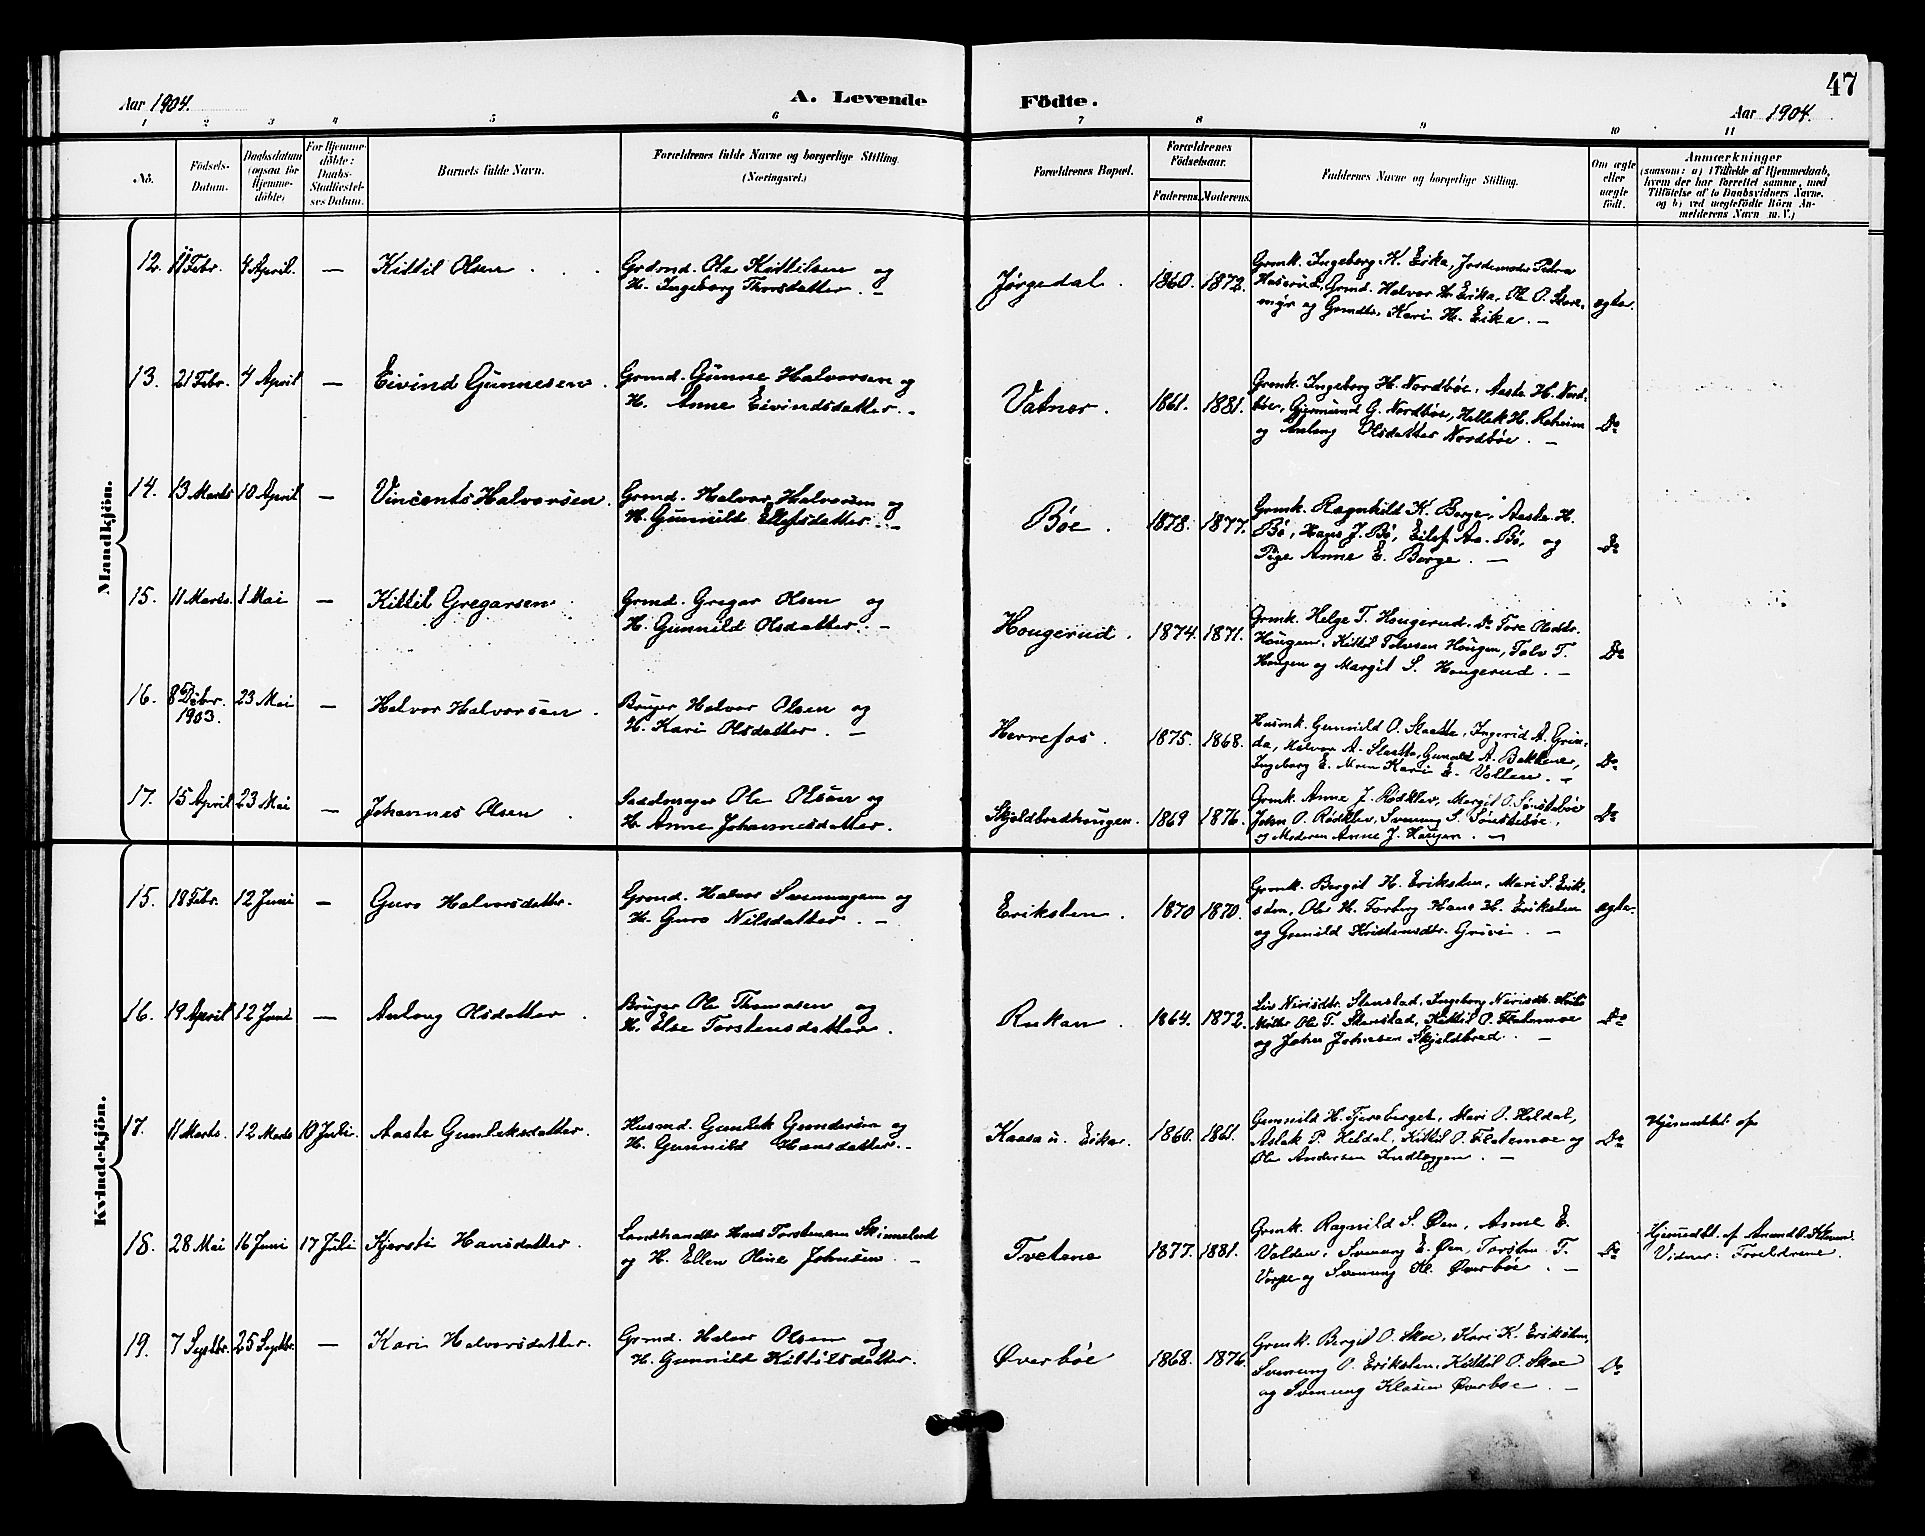 47
Aar 1904.
A. Levende
Födte.
Aar 1904.
1 2 3 4 5 6 7 8 9 10 11
No.
Födsels-Datum.
Daabsdatum (ogsaa for Hjemme-döbte)
For Hjemme-döbte: Daabs-Stadfæstel-ses Datum.
Barnets fulde Navn.
Forældrenes fulde Navne og borgerlige Stilling. (Næringsvei.)
Forældrenes Bopæl.
Forældrenes Födselsaar.
Faderens. Moderens.
Faddernes Navne og borgerlige Stilling.
Om ægte eller uægte födt.
Anmærkninger
(saasom: a) i Tilfælde af Hjemmedaab, hvem der har forrettet samme, med Tilföielse af to Daabsvidners Navne, og b) ved uægtefödte Börn An-melderens Navn m. V.)
Mandkjön.
12. 11 Febr. 4 April. — Kittil Olsen
Grdmd. Ole Kittilsen og
H. Ingeborg Thorsdatter. —
Jørgedal. 1860. 1872.
Grmk. Ingeborg K. Eika, Jordemoder Petra
Haserud, Grmd. Halvor H. Eika, Ole O. Store-
myr og Grmdtr. Kari H. Eika. —
ægte.
13. 21 Febr. 4 April — Eivind Gunnesen.
Grmd. Gunne Halvorsen og
H. Anne Eivindsdatter. —
Vatnar. 1861. 1881.
Grmk. Ingeborg H. Nordbøe, Aaste H. Nord-
bøe, Gjermund G. Nordbøe, Hellek H. Roheim
og Anlaug Olsdatter Nordbøe. —
Do
14. 13 Marts 10 April — Vincents Halvorsen.
Grmd. Halvor Halvorsen og
H. Gunnild Ellefsdatter. —
Bøe. 1878. 1877.
Grmk. Ragnhild K. Borge, Aaste H.
Bø, Hans J. Bø, Eilef Aa. Bø, og
Pige Anne E. Borge. —
Do
15. 11 Marts. 1 Mai — Kittil Gregarsen
Grmd. Gregar Olsen og
H. Gunnild Olsdatter. —
Hougerud. 1874. 1871.
Grmk. Helge T. Hougerud. Do Tore Olsdtr.
Hougen, Kittil Tolvsen Hougen, Tolv T.
Hougen og Margit S. Hougerud. —
Do
16. 8 Debr. 1903. 23 Mai — Halvor Halvorsen.
Bruger Halvor Olsen og
H. Kari Olsdatter. —
Herrefos. 1875. 1868.
Husmk. Gunnild O. Slaatta, Ingerid A. Grin-
da, Halvor A. Slaatta, Gunuld A. Bakkene,
Ingeborg E. Moen Kari E. Vollen. —
Do
17. 15 April 23 Mai — Johannes Olsen.
Sadelmager Ole Olsen og
H. Anne Johannesdatter.
Skjeldbredhaugen. 1869 1876.
Grmk. Anne J. Rødklev, Margit O. Sønstebøe
John O. Rødklev, Svenung S. Sønstebøe,
og Moderen Anne J. Haugen. —
Do
Kvindekjön.
15. 18 Febr. 12 Juni — Guro Halvorsdatter.
Grmd. Halvor Svenungsen og
H. Guro Nilsdatter. —
Eriksten. 1870 1870.
Grmk. Bergit H. Eriksten, Mari S. Erik-
sten, Ole H. Forberg Hans H. Eriksten
og Gunild Kristensdtr. Grivi. —
ægte.
16. 19 April 12 Juni — Anlaug Olsdatter.
Bruger Ole Thomasen og
H. Else Torstensdatter.
Rukan. 1864. 1872.
Liv Nirisdtr. Stenstad, Ingeborg Nirisdtr.
Ole T. Stenstad, Kittil O. Flatemoe
og John Johnsen Skjeldbred. —
Do
17. 11 Marts. 12 Marts 10 Juli. Aaste Gunleksdatter.
Husmd. Gunlek Gundersen og
H. Gunnild Hansdatter. —
Kaasa u. Eika. 1860. 1861.
Gunnild H. Tjereberget, Mari O. Heldal,
Aslak P. Heldal, Kittil O. Flatemoe og
Ole Andersen Indlæggen. —
Do
Hjemmedøbt af
18. 28 Mai 16 Juni 17 Juli Kjersti Hansdatter.
Landhandler Hans Torstensen Skinnelund
og H. Ellen Oline Johnsen. —
Tvetene 1877. 1881.
Grmk. Ragnild S. Øen, Anne E.
Valden, Svenung E. Øen, Torsten T.
Vorpe og Svenung Kl. Øverbøe. —
Do
Hjemmedøbt af Amund O.
Vidner: Forældrene.
19. 7 Septbr. 25 Septbr. — Kari Halvorsdatter.
Grmd. Halvor Olsen og
H. Gunnild Kittilsdatter.
Øverbøe 1868. 1876.
Grmk. Bergit O. Skoe, Kari K. Eriksten,
Svenung O. Eriksten, Kittil O. Skoe
og Svenung Klasen Øverbøe. —
Do